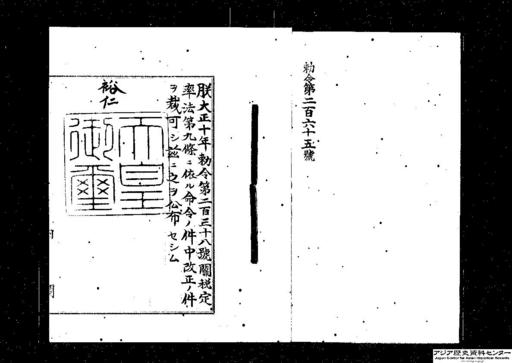 勅令第二百六十五號
朕大正十年勅令第二百三十八號關税定
率法第九條ニ依ル命令ノ件中改正ノ件
ヲ裁可シ茲ニ之ヲ公布セシム
裕仁
天皇
御璽
内閣
アジア歴史資料センター
Japan Center for Asian Historical Records